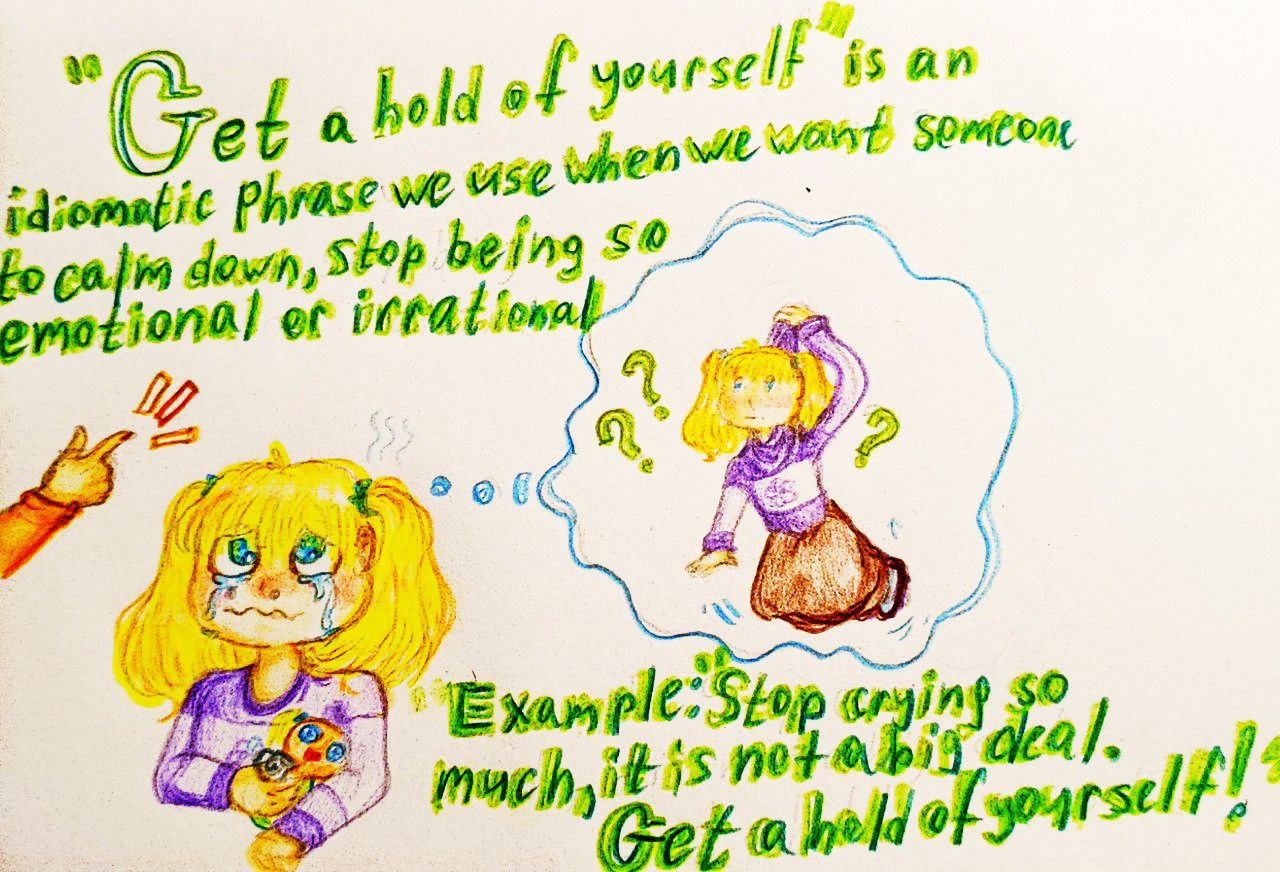 "Get a hold of yourself" is an
idiomatic phrase we use when we want someone
to calm down, stop being so
emotional or irrational
? ? ?
"Example: "Stop crying so
much, it is not a big deal.
Get a hold of yourself!"